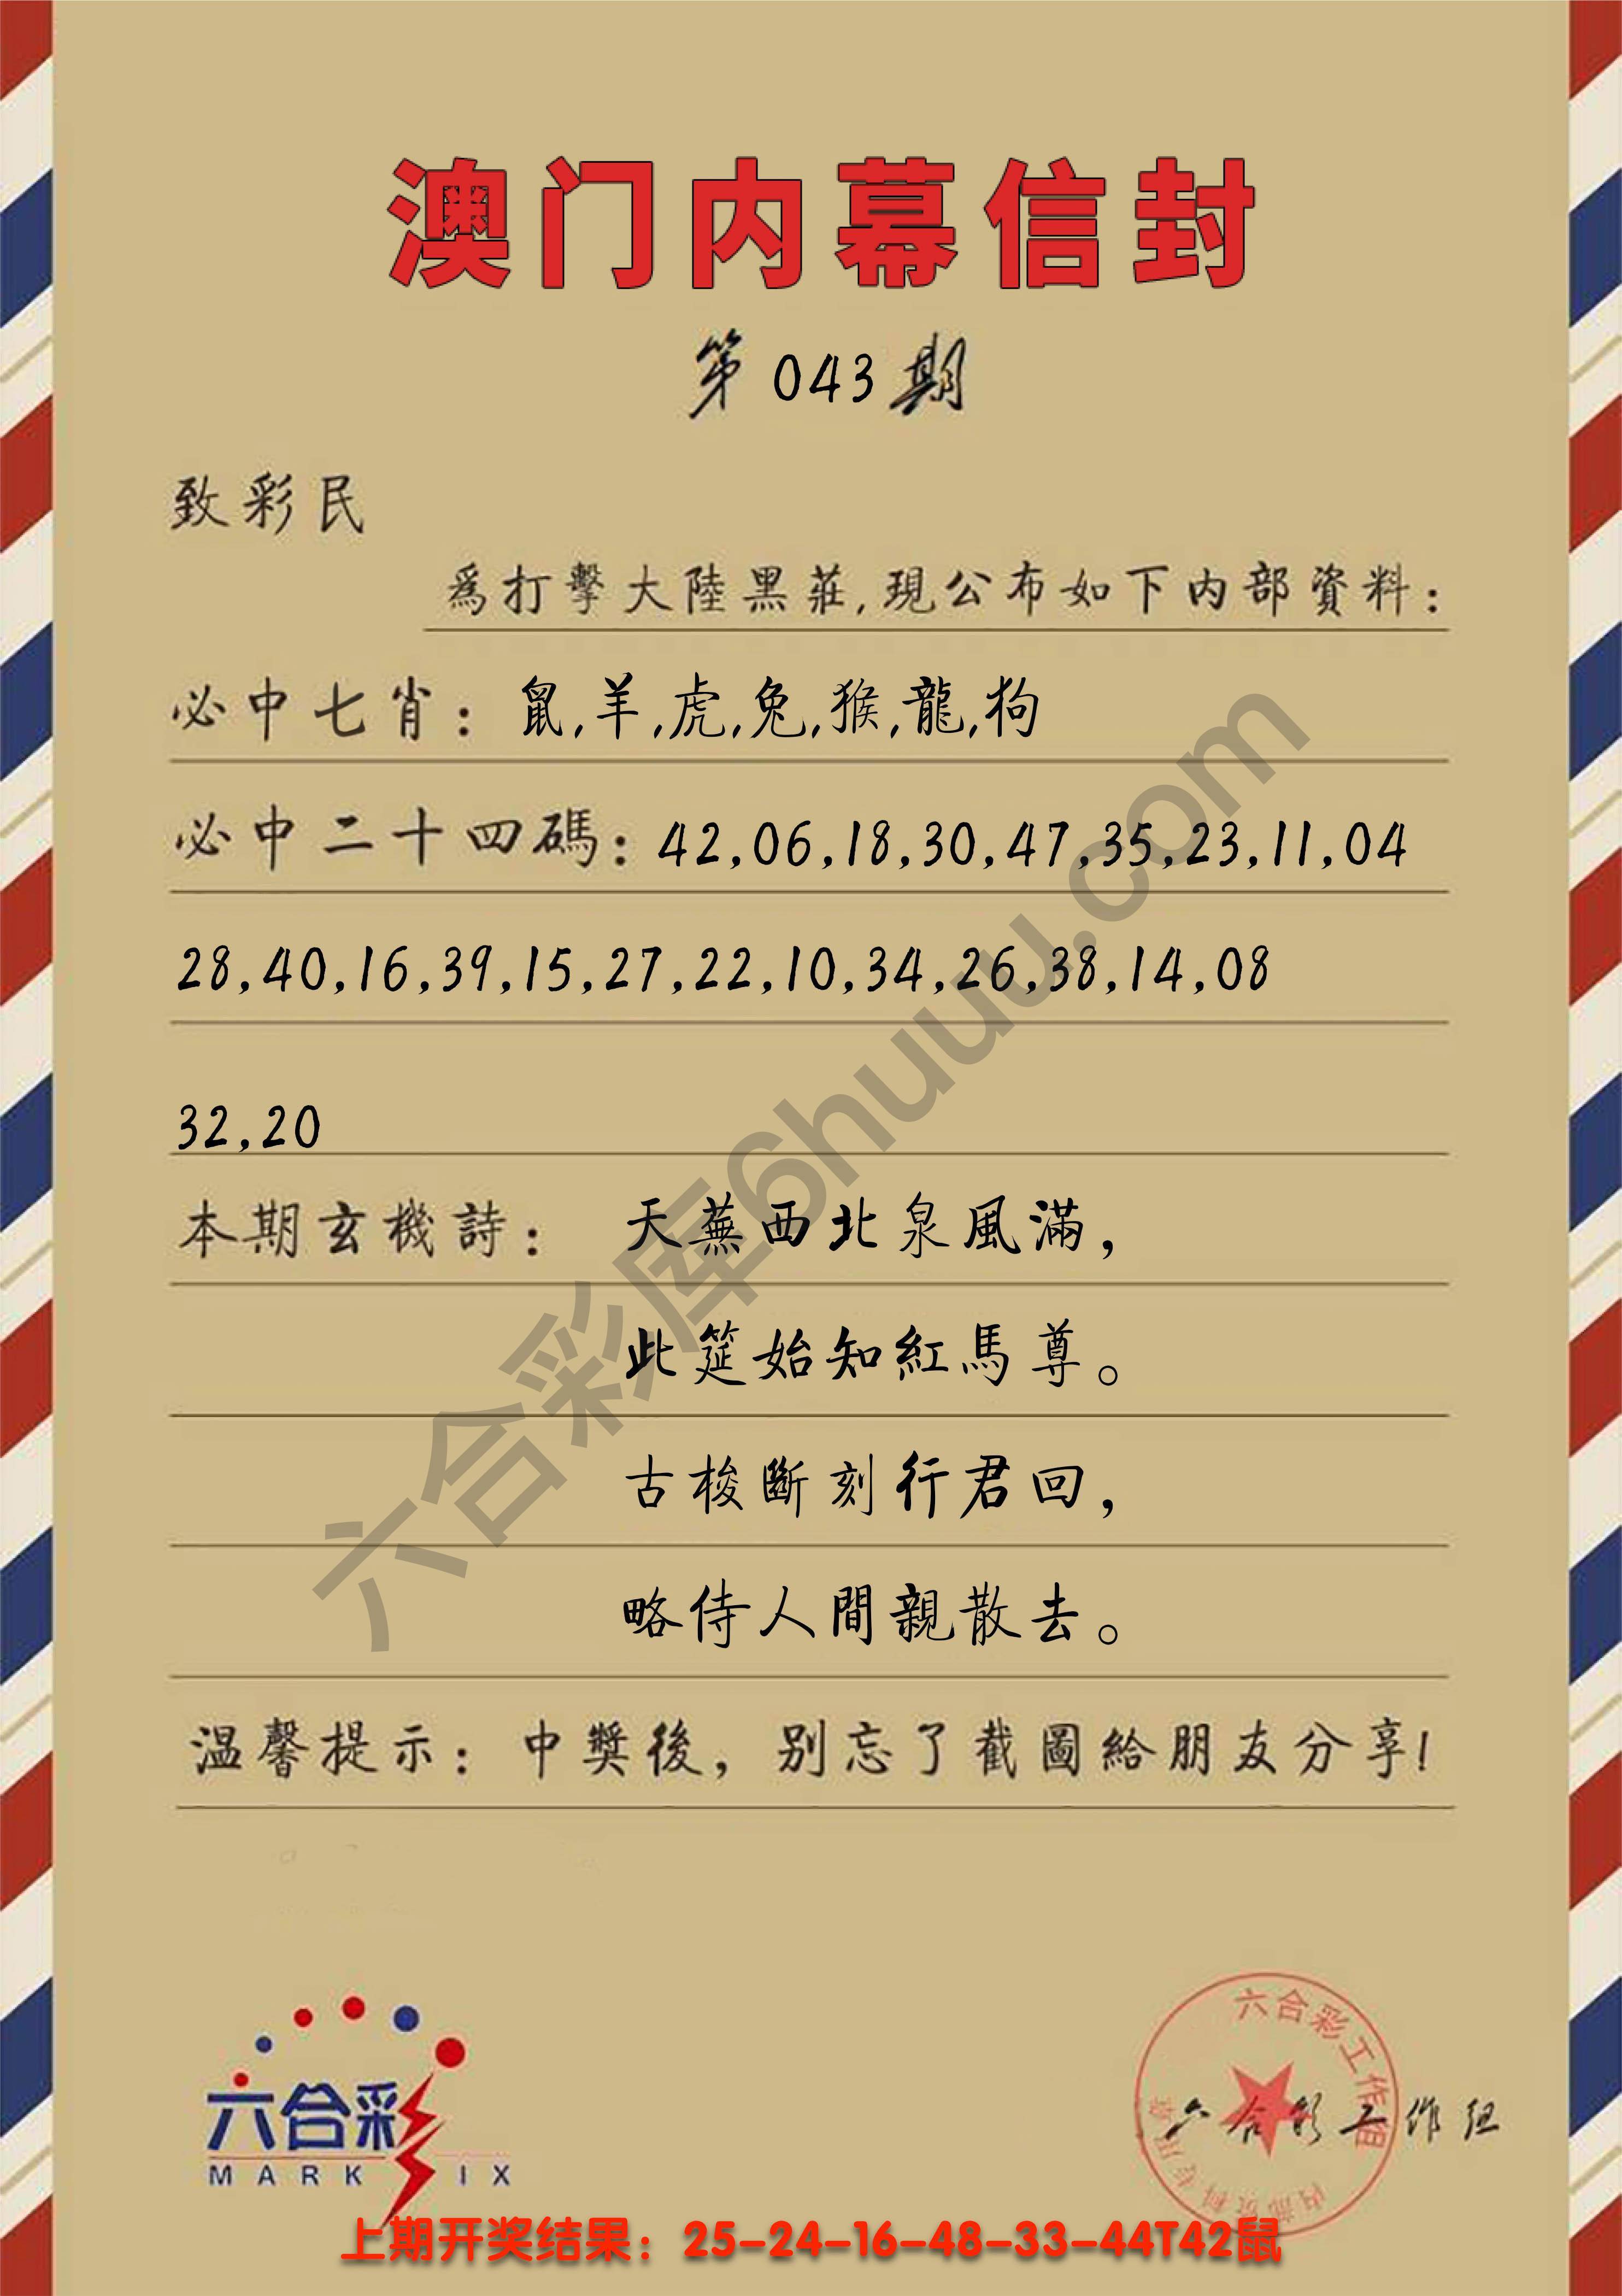 澳门内幕信封
第043期
致彩民
爲打擊大陸黑莊,現公布如下内部資料:
必中七肖: 鼠,羊,虎,兔,猴,龍,狗
必中二十四碼: 42,06,18,30,47,35,23,11,04
28,40,16,39,15,27,22,10,34,26,38,14,08
32,20
本期玄機詩: 天蕪西北泉風滿,
此筵始知紅馬尊。
古梭斷刻行君回,
略侍人間親散去。
温馨提示:中獎後,别忘了截圖給朋友分享!
六合彩库6huuu.com
六合彩
MARK SIX
六合彩工作组
内部资料专用章
六合彩工作组
上期开奖结果：25-24-16-48-33-44T42鼠